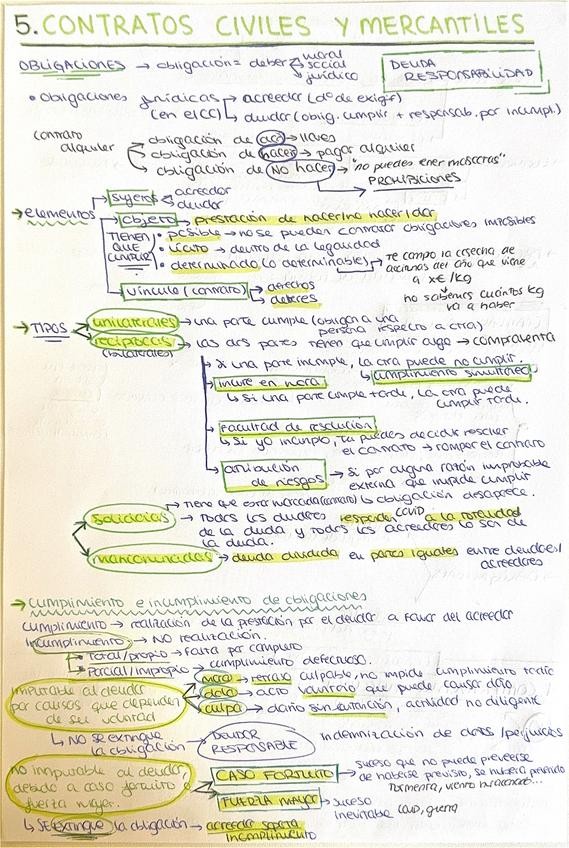 5. CONTRATOS CIVILES Y MERCANTILES
OBLIGACIONES → obligación = deber moral
social
jurídico
DEUDA
RESPONSABILIDAD
• Obligaciones jurídicas → acreedor (dº de exigir)
(en el CC) → deudor (oblig. cumplir + responsab. por incumpl.)
contrato alquiler
obligación de dar → llaves
obligación de hacer → pagar alquiler
obligación de NO hacer → "no puedes tener mascotas"
PROHIBICIONES
→ elementos
sujetos → acreedor
deudor
objeto → prestación de hacer/no hacer/dar
TIENEN QUE CUMPLIR
• posible → no se pueden contratar obligaciones imposibles
• lícito → dentro de la legalidad
• determinado (o determinables) → Te compro la cosecha de
del año que viene
a x€/kg
no sabemos cuántos kg
va a haber
vínculo (contrato) → derechos
deberes
→ TIPOS
unilaterales → una parte cumple (obligan a una
persona respecto a otra)
recíprocas → las dos partes tienen que cumplir algo → compraventa
(bilaterales)
→ Si una parte incumple, la otra puede no cumplir.
↳ cumplimiento simultáneo
incurre en mora
↳ Si una parte cumple tarde, la otra puede
cumplir tarde.
Facultad de resolución
↳ Si yo incumplo, tú puedes decidir rescindir
el contrato → romper el contrato
atribución
de riesgos → Si por alguna razón improbable
externa que impide cumplir
↳ obligación desaparece.
COVID
→ Tiene que estar marcada (contrato)
solidarias → Todos los deudores responden a la totalidad
de la deuda y todos los acreedores lo son de
la deuda.
mancomunadas → deuda dividida en partes iguales entre deudores/
acreedores
→ cumplimiento e incumplimiento de obligaciones
cumplimiento → realización de la prestación por el deudor a favor del acreedor
Incumplimiento → NO realización.
→ Total/propio → Falta por completo
→ Parcial/impropio → cumplimiento defectuoso.
imputable al deudor
por causas que dependen
de su voluntad
mora → retraso culpable, no impide cumplimiento tardío
dolo → acto voluntario que puede causar daño
culpa → daño sin intención, actividad no diligente
↳ NO SE extingue
la obligación → DEUDOR
RESPONSABLE
Indemnización de daños/perjuicios
no imputable al deudor,
debido a caso fortuito o
fuerza mayor.
CASO FORTUITO → suceso que no puede preverse
de haberse previsto, se hubiera prevenido
Tormenta, viento huracanado...
FUERZA MAYOR → suceso
inevitable Covid, guerra
↳ SE extingue la obligación → acreedor soporta
incumplimiento